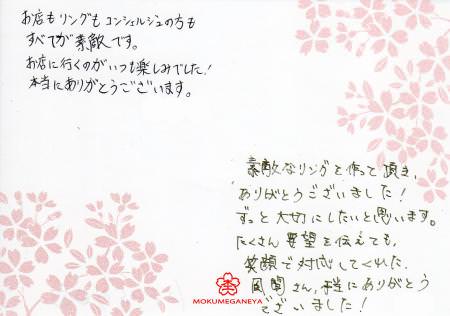 お店もリングもコンシェルジュの方も
すべてが素敵です。
お店に行くのがいつも楽しみでした！
本当にありがとうございます。
素敵なリングを作って頂き、
ありがとうございました！
ずっと大切にしたいと思います。
たくさん要望を伝えても、
笑顔で対応してくれた
さん、本当にありがとう
ございました！
MOKUMEGANEYA